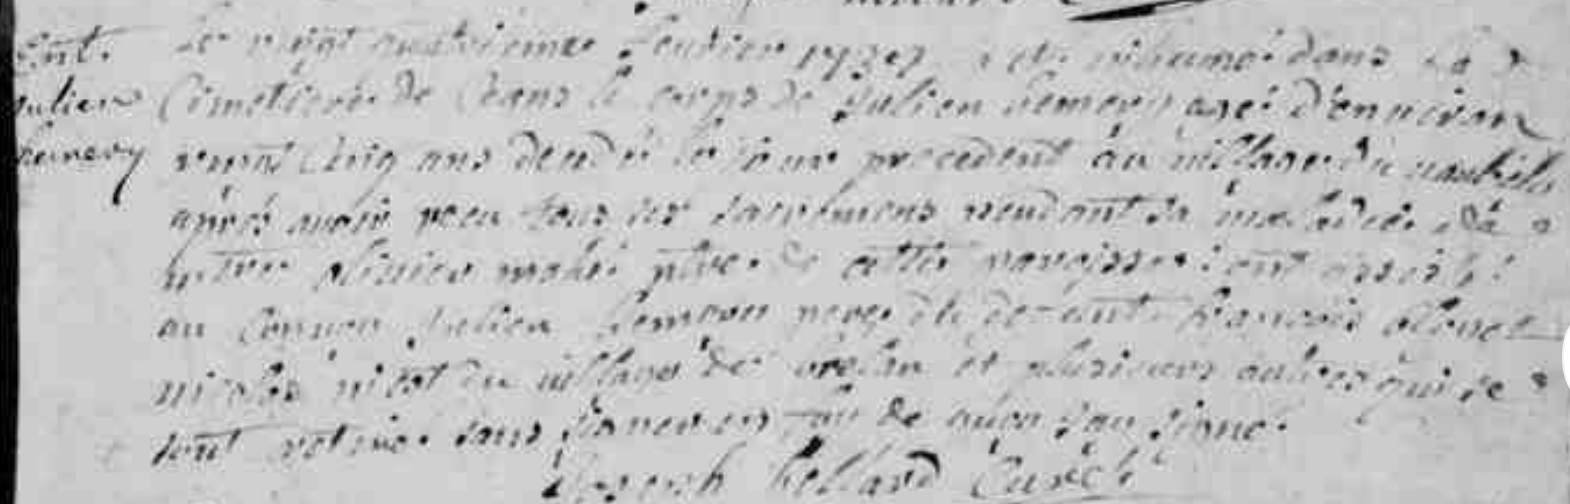 Ent.
Julien
hemery
Le vingt quatrieme feuvrier 1737 a ete inhumé dans le
Cimetiere de Ceans le corps de Julien hemery agé d'enuiron
vingt Cinq ans decedé le jour precedent au village du
apres auoir receu tous les sacrements pendant sa maladie
mahé ptre de cette paroisse: ont assisté
au Conuoy Julien hemery pere du defunt françois
nicolas du village de et plusieurs autres qui se
sont retirés sans signer en foy de quoy J'ay signé.
Joseph Curé